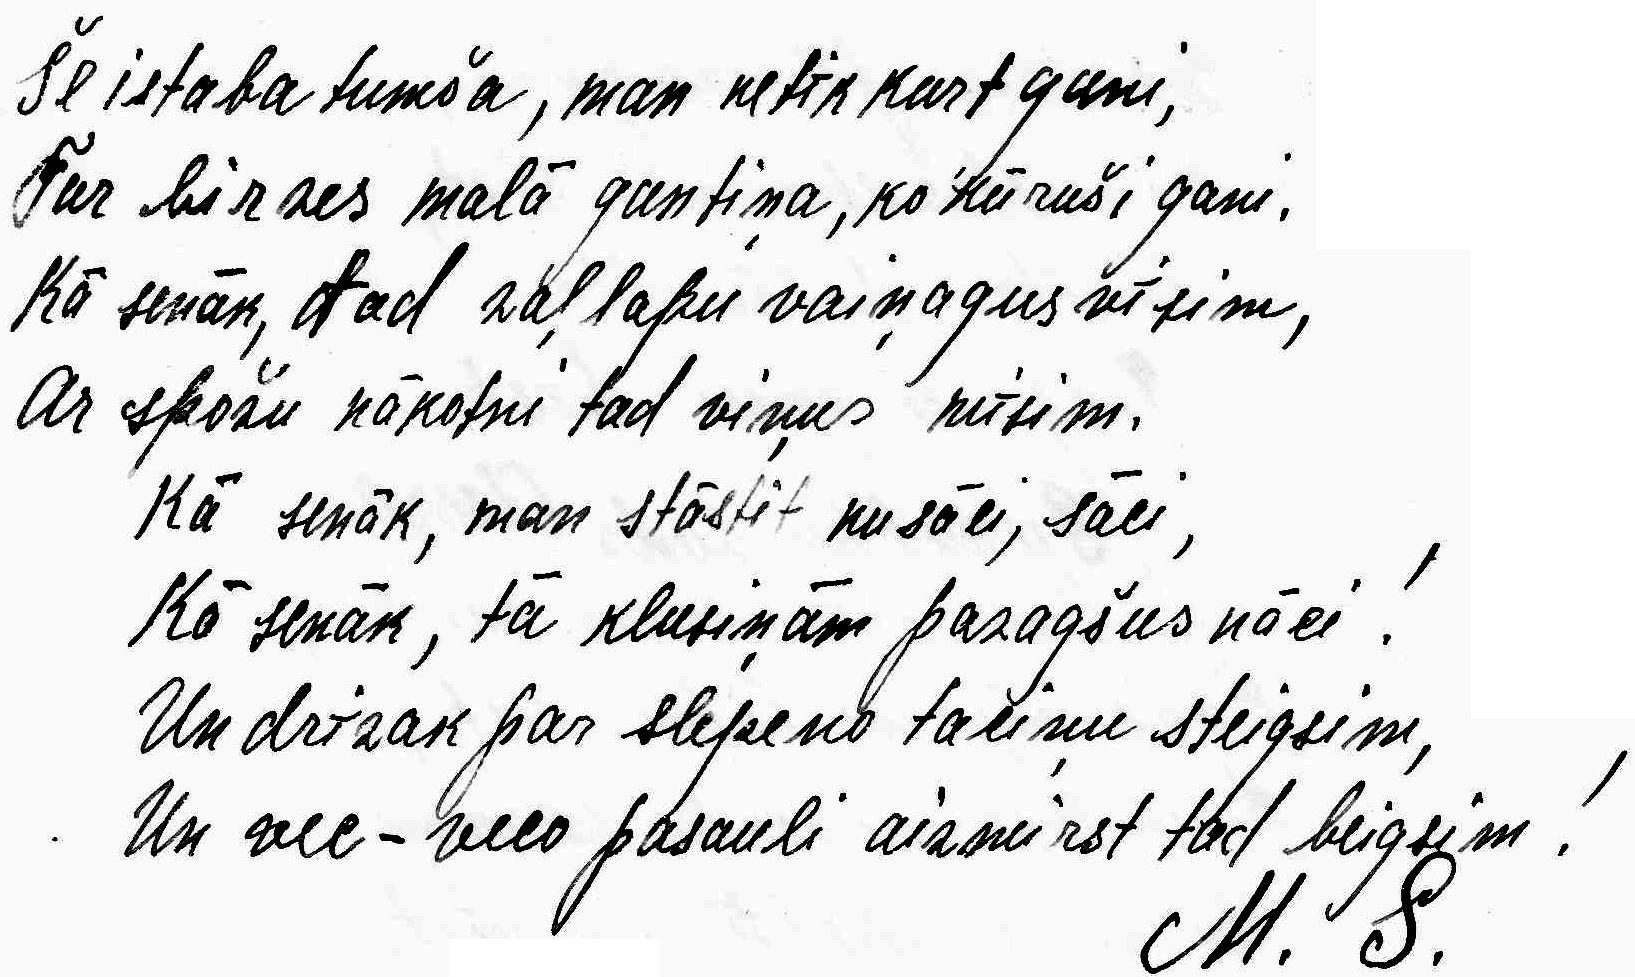 Še istaba tumša, man netik kurt guni,
Tur birzes malā guntiņa, ko kūruši gani.
Kā senāk, tad zaļlapu vaiņagus vīsim,
Ar spožu nākotni tad viņus mīsim.
Kā senāk, man stāstīt nu sāci, sāci,
Kā senāk, tā klusiņām pazagšus nāci!
Un drīzak par slepeno taciņu steigsim,
Un vec-veco pasauli aizmirst tad beigsim!
M. S.